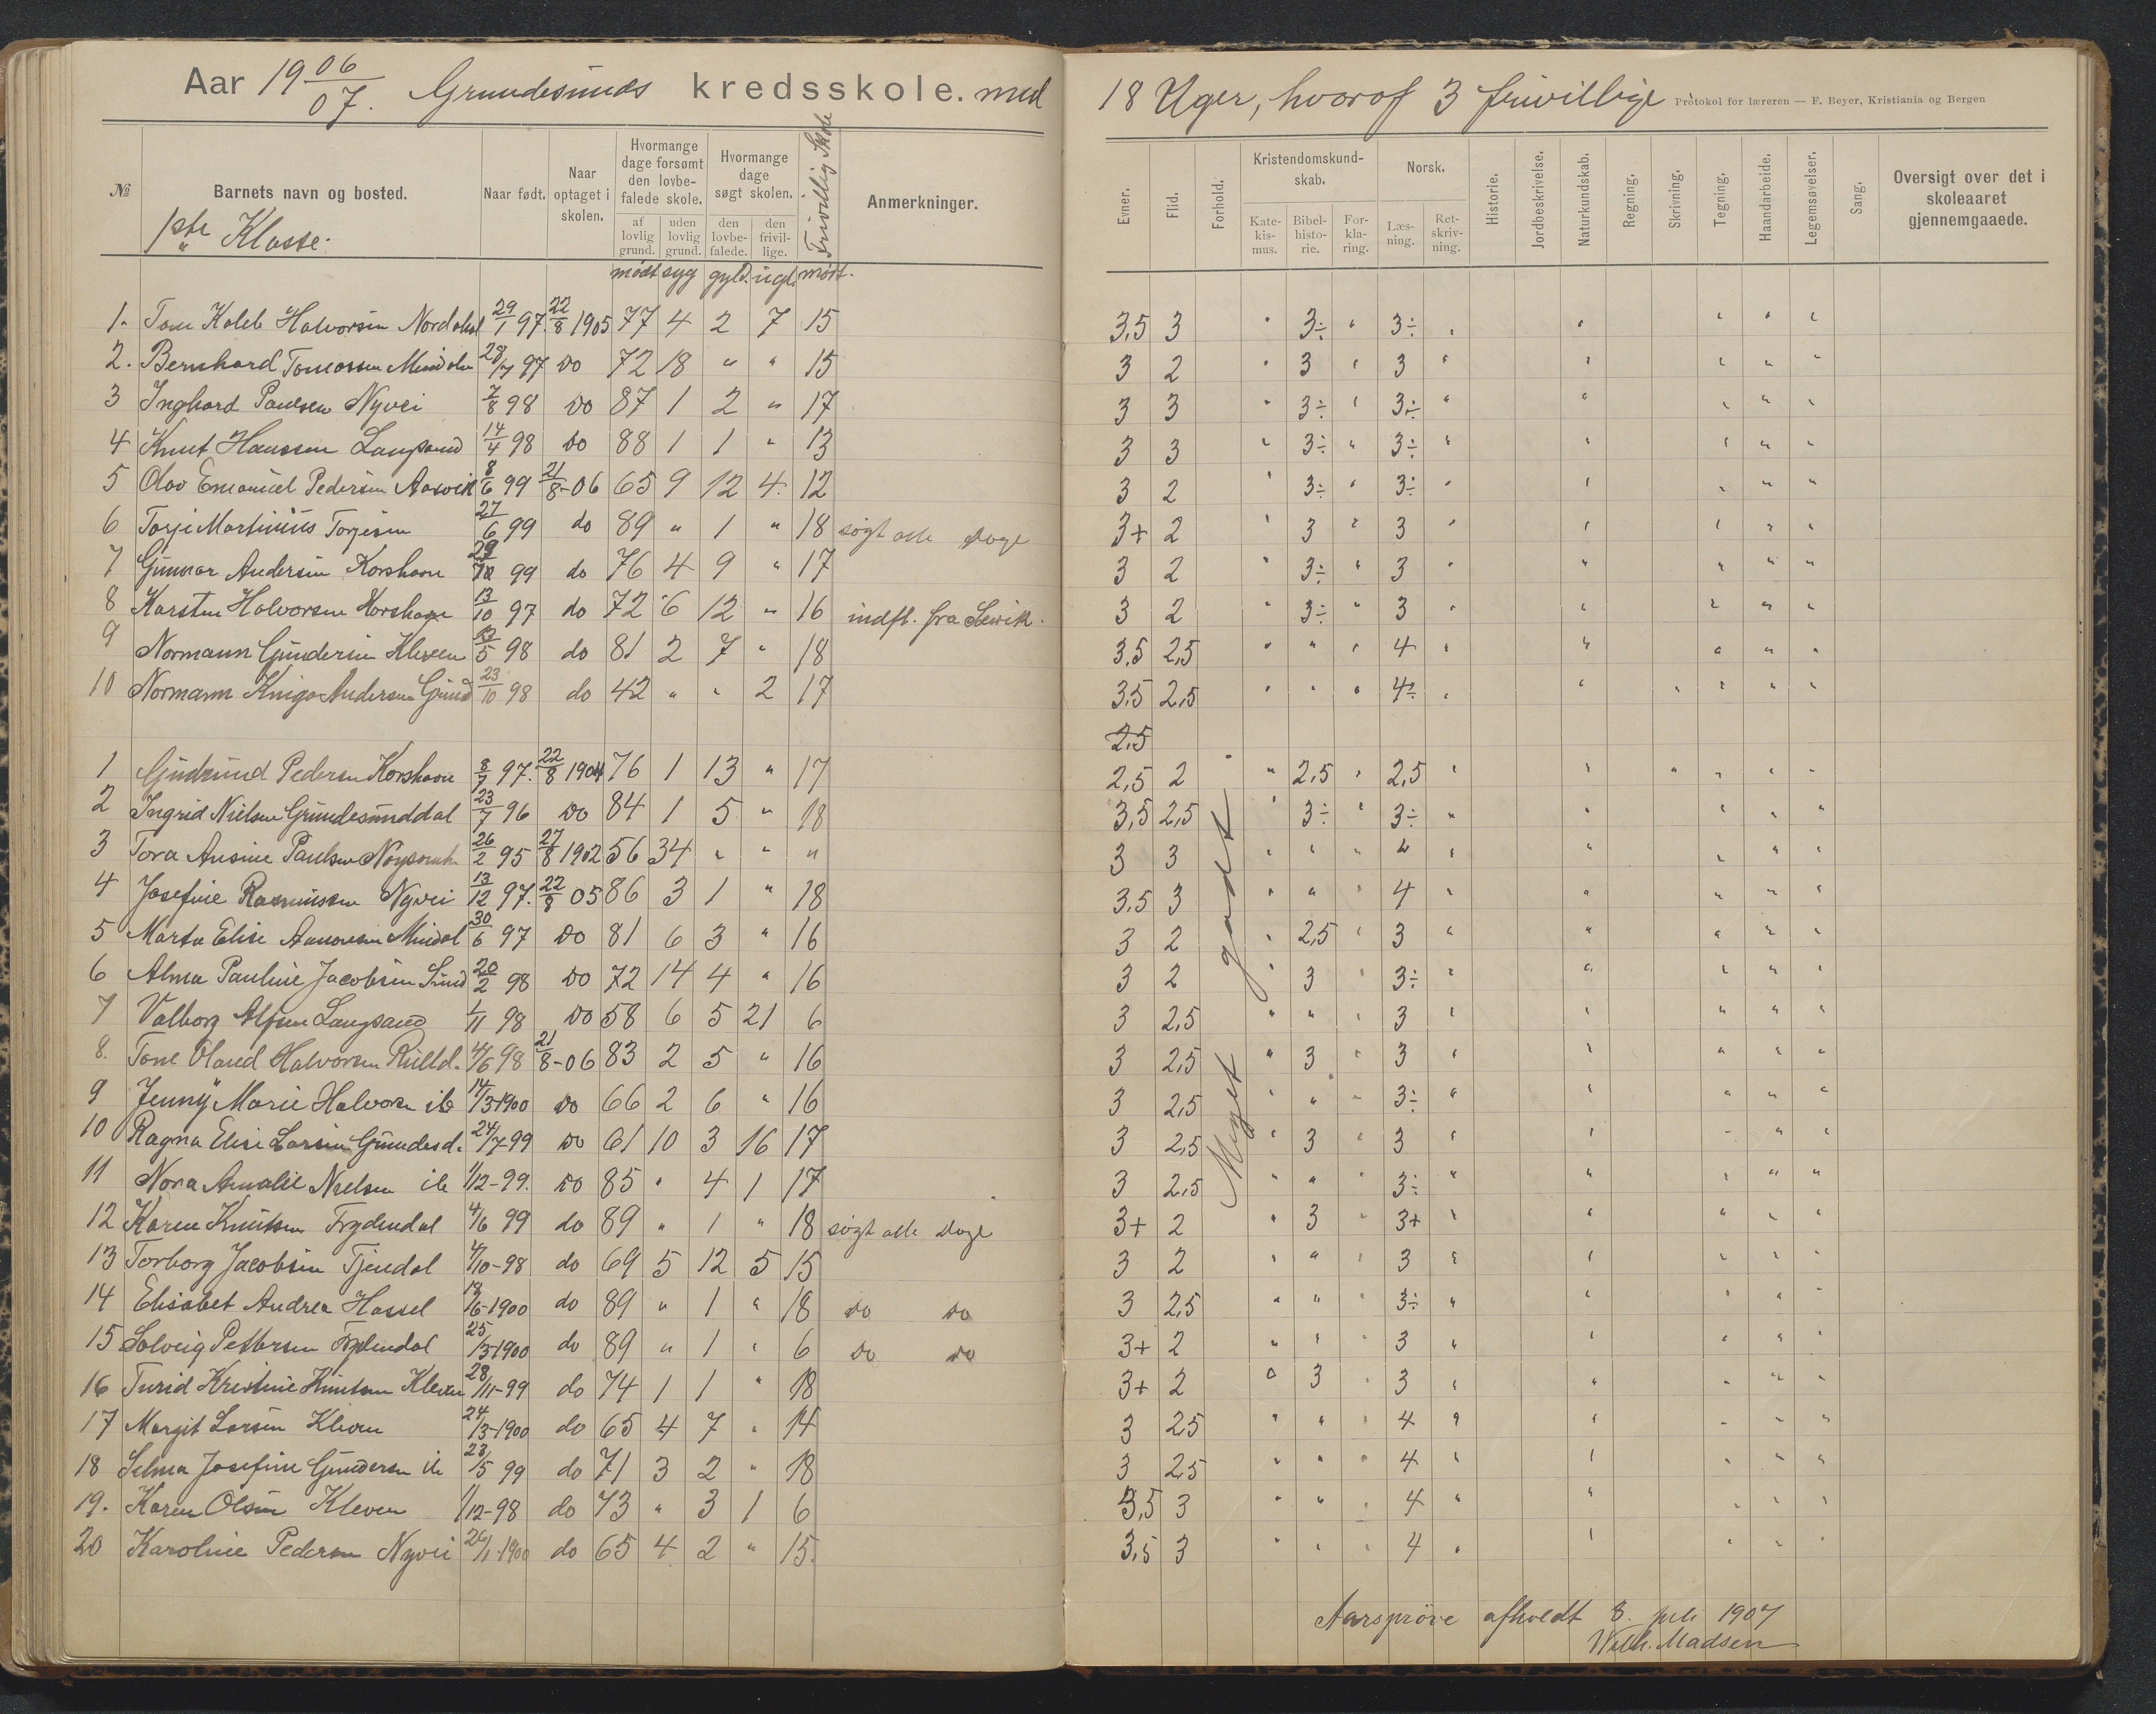 Aar 19 06/07. Grundesunds kredsskole. med 18 Uger, hvoraf 3 frivillige
Protokol for læreren — F. Beyer, Kristiania og Bergen
№ Barnets navn og bosted. Naar født. Naar optaget i skolen. Hvormange dage forsømt den lovbefalede skole. af lovlig grund. uden lovlig grund. Hvormange dage søgt skolen. den lovbefalede. den frivillige. Frivillig Skole Anmerkninger.
1ste Klasse.
mødt syg gyld. ugl. mødt.
Evner. Flid. Forhold. Kristendomskundskab. Katekismus. Bibelhistorie. Forklaring. Norsk. Læsning. Retskrivning. Historie. Jordbeskrivelse. Naturkundskab. Regning. Skrivning. Tegning. Haandarbeide. Legemsøvelser. Sang. Oversigt over det i skoleaaret gjennemgaaede.
1. Tom Kaleb Halvorsen Nordahl 29/1 97 22/8 1905 77 4 2 7 15 3,5 3 " 3÷ " 3÷ "
2. Bernhard Tomassen Mindal 28/7 97 Do 72 18 " " 15 3 2 " 3 " 3 "
3 Inghard Paulsen Nyvei 7/8 98 Do 87 1 2 " 17 3 3 " 3÷ " 3÷ "
4 Knut Hanssen Langsand 14/4 98 Do 88 1 1 " 13 3 3 " 3÷ " 3÷ "
5 Olav Emanuel Pedersen Aasvik 8/6 99 21/8-06 65 9 12 4. 12 3 2 " 3÷ " 3÷ "
6 Torje Martinius Torjesen 27/6 99 do 89 " 1 " 18 søgt alle Dage 3+ 2 " 3 " 3 "
7 Gunnar Andersen Korshavn 29/12 99 do 76 4 9 " 17 3 2 " 3÷ " 3 "
8 Karsten Halvorsen Korshavn 13/10 97 do 72 6 12 " 16 indfl. fra 3 2 " 3÷ " 3 "
9 Normann Gundersen Kleven 13/5 98 do 81 2 7 " 18 3,5 2,5 " " " 4 "
10 Normann Andersen 23/10 98 do 42 " " 2 17 3,5 2,5 " " " 4÷ "
2,5
1 Gudrund Pedersen Korshavn 8/7 97. 22/8 1904 76 1 13 " 17 2,5 2 " 2,5 " 2,5 "
2 Ingrid Nielsen Grundesunddal 23/7 96 Do 84 1 5 " 18 3,5 2,5 " 3÷ " 3÷ "
3 Tora Ansine Paulsen 26/2 95 27/8 1902 56 34 " " " 3 3 " " " " "
4 Josefine Rasmussen Nyvei 13/12 97. 22/8 05 86 3 1 " 18 3,5 3 " " " 4 "
5 Marta Elise Aanonsen Mindal 30/6 97 Do 81 6 3 " 16 3 2 " 2,5 " 3 "
6 Alma Pauline Jacobsen Sund 20/2 98 Do 72 14 4 " 16 3 2 " 3 " 3÷ "
7 Valborg Alfsen Langsand 1/11 98 Do 58 6 5 21 6 3 2,5 " " " 3 "
8. Tone Olaud Halvorsen 4/6 98 21/8-06 83 2 5 " 16 3 2,5 " 3 " 3 "
9 Jenny Marie Halvorsen ib 14/3-1900 Do 66 2 6 " 16 3 2,5 " " " 3÷ "
10 Ragna Elise Larsen Grundesd. 24/7-99 Do 61 10 3 16 17 3 2,5 " 3 " 3 "
11 Nora Amalie Nielsen ib 1/12-99. Do 85 " 4 1 17 3 2,5 " " " 3÷ "
12 Karen Knutsen Frydendal 4/6 99 do 89 " 1 " 18 søgt alle Dage 3+ 2 " 3 " 3+ "
13 Torborg Jacobsen Tjendal 4/10-98 do 69 5 12 5 15 3 2 " " " 3 "
14 Elisabet Andrea Hassel 19/6-1900 do 89 " 1 " 18 Do Do 3 2,5 " " " 3÷ "
15 Solveig Pettersen Frydendal 25/3-1900 do 89 " 1 " 6 Do Do 3+ 2 " " " 3 "
16 Turid Kristine Knutsen Kleven 28/11-99 do 74 1 1 " 18 3+ 2 " 3 " 3 "
17 Margit Larsen Kleven 24/3-1900 do 65 4 7 " 14 3 2,5 " " " 4 "
18 Selma Josefine Gundersen ib 23/5 99 do 71 3 2 " 18 3 2,5 " " " 4 "
19. Karen Olsen Kleven 1/12-98 do 73 " 3 1 6 3,5 3 " " " 4 "
20 Karoline Pedersen Nyvei 26/1-1900 do 65 4 2 " 15. 3,5 3 " " " 4 "
Meget godt.
Aarsprøve afholdt 8. juli 1907
Wilh. Madsen